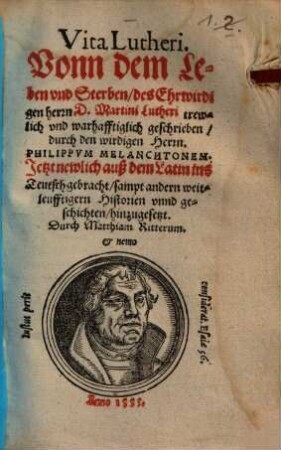 1. 2.
Vita Lutheri.
Vonn dem Le-
ben vnd Sterben/des Ehrwirdi
gen herrn D. Martini Lutheri trew-
lich vnd warhafftiglich geschrieben/
durch den wirdigen Herrn.
PHILIPPVM MELANCHTONEM.
Jetzt newlich auß dem Latin ins
Teutsch gebracht/sampt andern weit-
leufftigern Historien vnnd ge-
schichten/hinzugesetzt.
Durch Matthiam Ritterum.
& nemo
Iustus perit
considerat. Esaie 56.
Anno 1555.